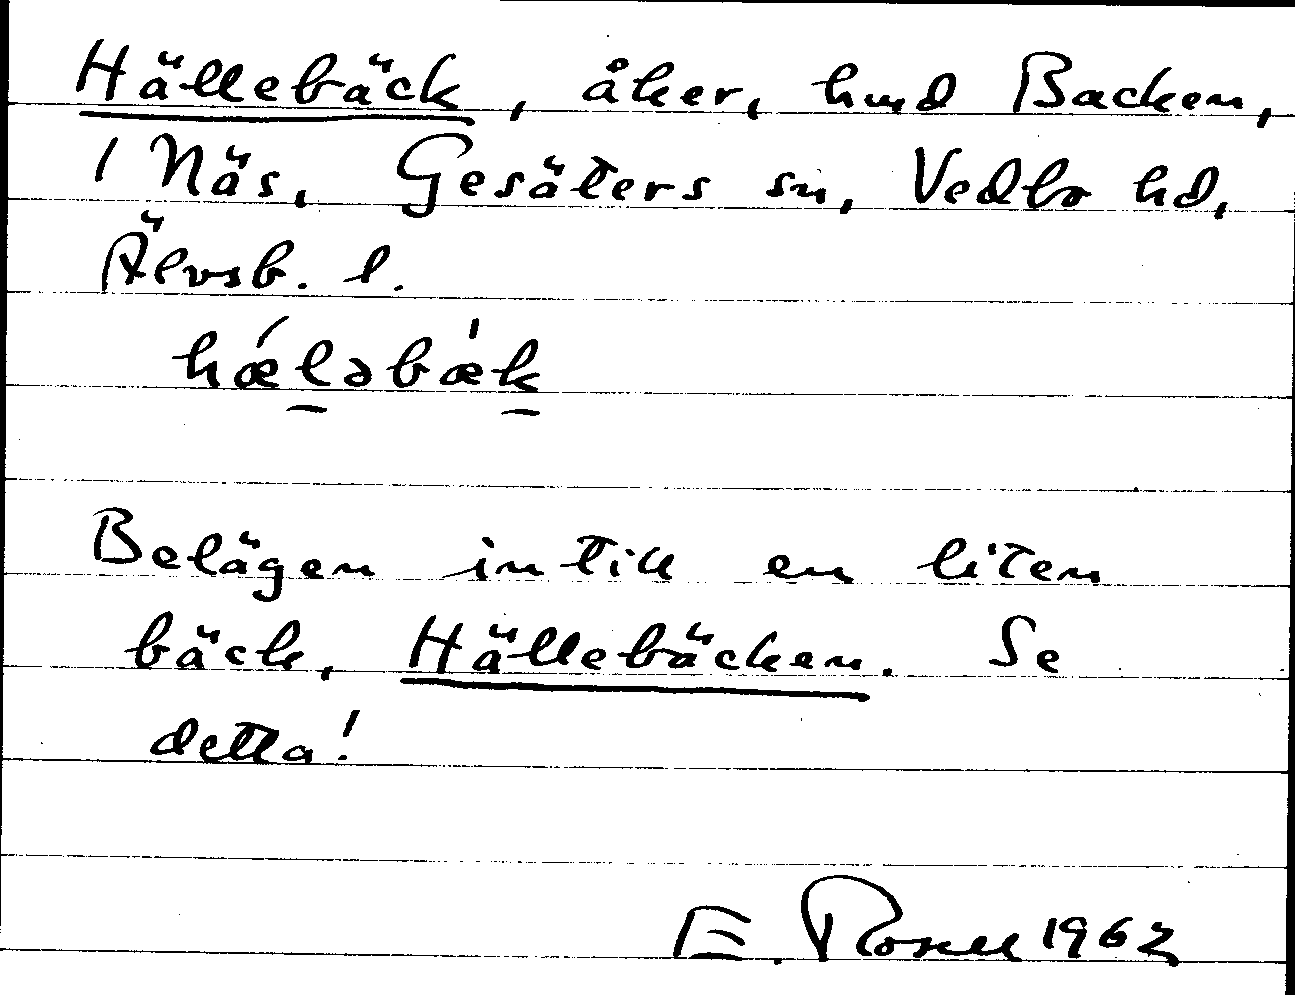 Hällebäck, åker, hmd Backen,
1 Näs, Gesäters sn, Vedbo hd,
Älvsb. l.
hǽl̠əbæ̍k̠
Belägen intill en liten
bäck, Hällebäcken. Se
detta!
E. Rosell 1962